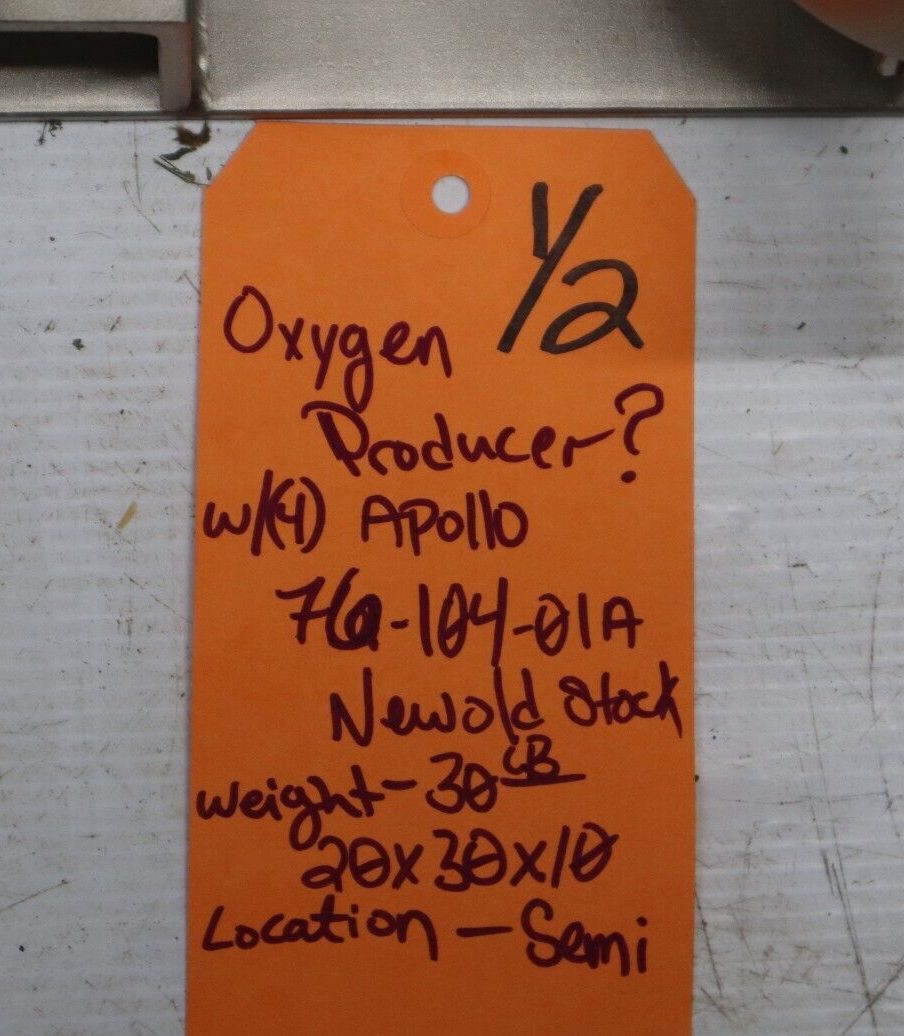 1/2
Oxygen
Producer?
w/(4) APOllO
76-104-01A
New old Stock
weight - 30 LB
20x30x10
Location - Semi